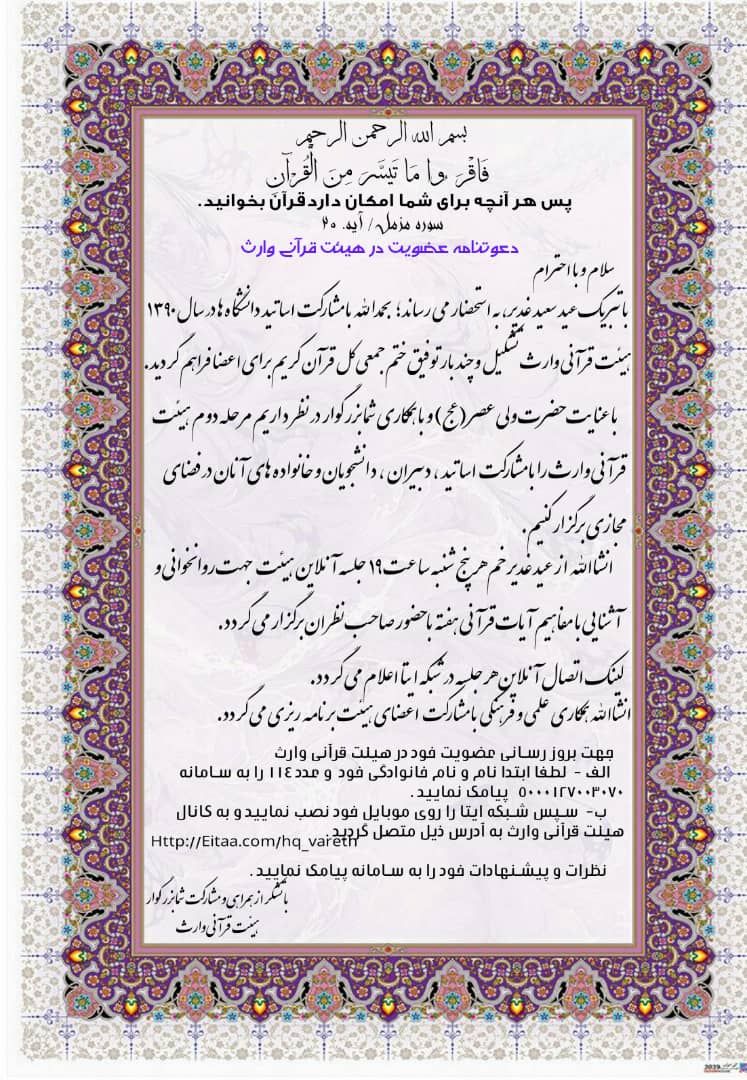 بسم الله الرحمن الرحیم
فَاقْرَءوا مَا تَیَسَّرَ مِنَ الْقُرْآن
پس هر آنچه برای شما امکان داردقرآن بخوانید.
سوره مزمل/ آیه. ۲۰
دعوتنامه عضویت در هیئت قرآنی وارث
سلام و با احترام
با تبریک عید سعید غدیر، به استحضار می رساند؛ بحمدالله با مشارکت اساتید دانشگاه ها در سال ۱۳۹۰
هیئت قرآنی وارث تشکیل و چند بار توفیق ختم جمعی کل قرآن کریم برای اعضا فراهم گردید.
با عنایت حضرت ولی عصر(عج) و با همکاری شما بزرگوار در نظر داریم مرحله دوم هیئت
قرآنی وارث را با مشارکت اساتید ، دبیران ، دانشجویان و خانواده های آنان در فضای
مجازی برگزار کنیم .
انشاالله از عید غدیر خم هر پنج شنبه ساعت ۱۹ جلسه آنلاین هیئت جهت روانخوانی و
آشنایی با مفاهیم آیات قرآنی هفته با حضور صاحب نظران برگزار می گردد.
لینک اتصال آنلاین هر جلسه در شبکه ایتا اعلام می گردد.
انشاالله همکاری علمی و فرهنگی با مشارکت اعضای هیئت برنامه ریزی می گردد.
جهت بروز رسانی عضویت خود در هیئت قرآنی وارث
الف - لطفا ابتدا نام و نام خانوادگی خود و عدد ۱۱۴ را به سامانه
۵۰۰۰۱۲۷۰۰۳۰۷۰ پیامک نمایید .
ب- سپس شبکه ایتا را روی موبایل خود نصب نمایید و به کانال
هیئت قرآنی وارث به آدرس ذیل متصل گردید
Http://Eitaa.com/hq_vareth
نظرات و پیشنهادات خود را به سامانه پیامک نمایید .
با تشکر از همراهی و مشارکت شما بزرگوار
هیئت قرآنی وارث